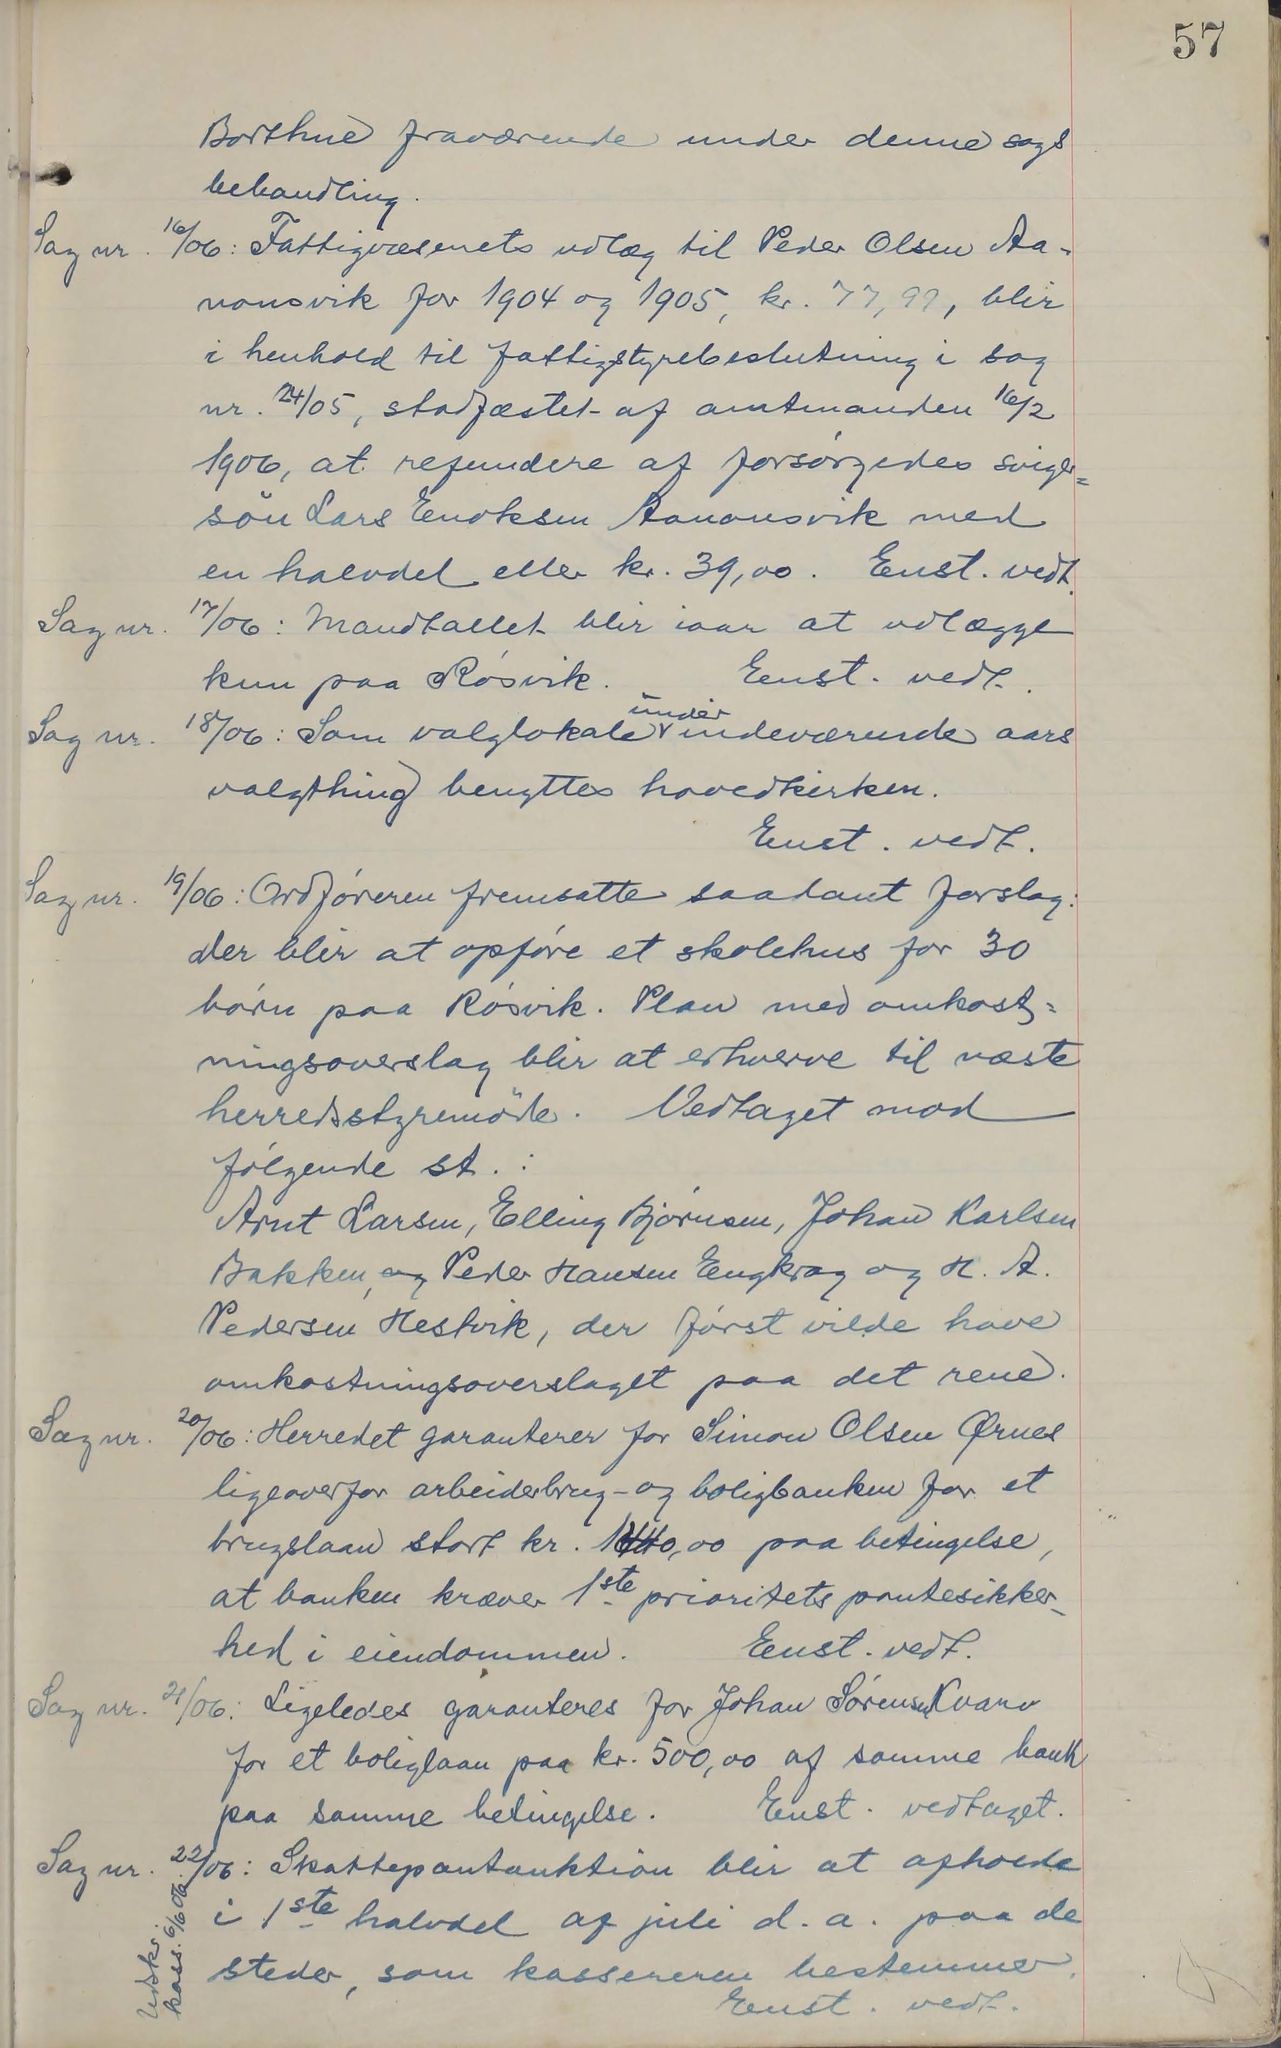 57
Borthne fraværende under denne sags
behandling.
Sag nr. 16/06: Fattigvæsenets udlæg til Peder Olsen Aa-
nonsvik for 1904 og 1905, kr. 77,99, blir
i henhold til fattigstyrebeslutning i sag
nr. 24/05, stadfæstet af amtmanden 16/2
1906, at refundere af forsørgedes sviger=
søn Lars Enoksen Aanonsvik med
en halvdel eller kr. 39,00. Enst. vedt.
Sag nr. 17/06: Mandtallet blir iaar at udlægge
kun paa Røsvik. Enst. vedt.
Sag nr. 18/06: Som valglokale under indeværende aars
valgthing benyttes hovedkirken.
Enst. vedt.
Sag nr. 19/06: Ordføreren fremsatte saadant forslag:
der blir at opføre et skolehus for 30
børn paa Røsvik. Plan med omkost=
ningsoverslag blir at erhverve til næste
herredsstyremøde. Vedtaget mod
følgende st. :
Arnt Larsen, Elling Bjørnsen, Johan Karlsen
Bakken, og Peder Hansen Engkrog og H. A.
Pedersen Hestvik, der først vilde have
omkostningsoverslaget paa det rene.
Sag nr. 20/06: Herredet garanterer for Simon Olsen Ørnes
ligeoverfor arbeiderbrug- og boligbanken for et
brugslaan stort kr. ,00 paa betingelse,
at banken kræver 1ste prioritets pantesikker-
hed i eiendommen. Enst. vedt.
Sag nr. 21/06: Ligeledes garanteres for Johan Sørensen Kvarv
for et boliglaan paa kr. 500,00 af samme bank
paa samme betingelse. Enst. vedtaget.
Sag nr. 22/06: Skattepantauktion blir at afholde
i 1ste halvdel af juli d. a. paa de
steder, som kassereren bestemmer.
Enst. vedt.
Udskr.
kass. 6/6 06.